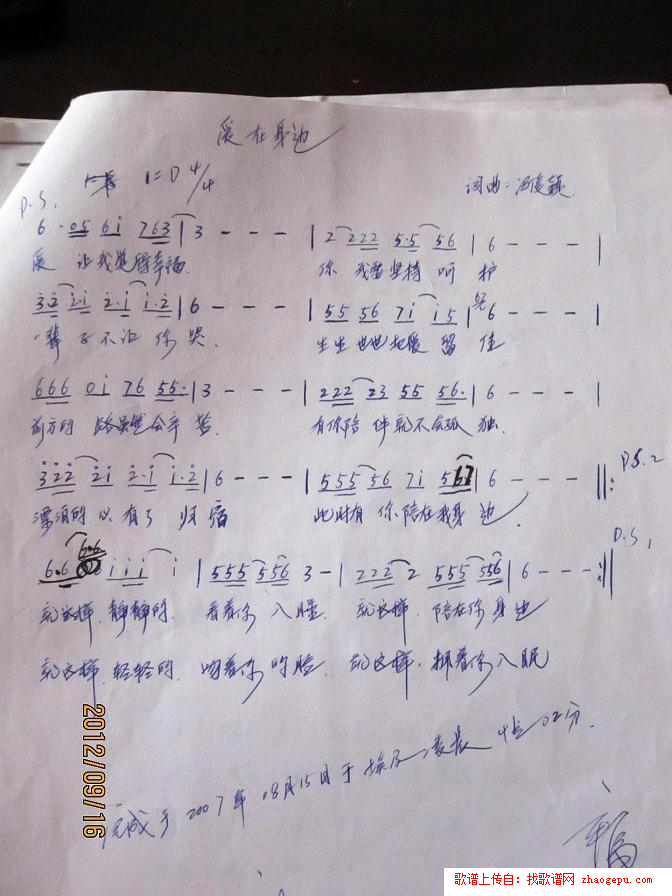 爱在身边
1=D 4/4
词曲:
P.S.
6 · 05 6i 763 | 3 - - - | 2 222 5·5 56 | 6 - - - |
爱 让我觉得幸福 你 我会坚持呵护
3·2 2·i 2·i i·2 | 6 - - - | 55 56 7i i5 | 6 - - - |
一辈子不让你哭 生生世世把爱留住
666 0i 76 55· | 3 - - - | 222 23 55 56· | 6 - - - |
前方的路虽然会辛苦 有你陪伴就不会孤独
322 2i 2·i i·2 | 6 - - - | 555 56 7i 567 | 6 - - - ‖: P.S.2
漂泊的心有了归宿 此时有你陪在我身边
D.S.1
6·6 6·6 iii i | 555 556 3 - | 222 2 555 556 | 6 - - - :‖
就这样,静静的 看着你入睡 就这样,陪在你身边
就这样,轻轻的 吻着你的脸 就这样,拥着你入眠
完成于2007年08月15日于埃及凌晨 02分.
2012/09/16
歌谱上传自:找歌谱网
zhaogepu.com